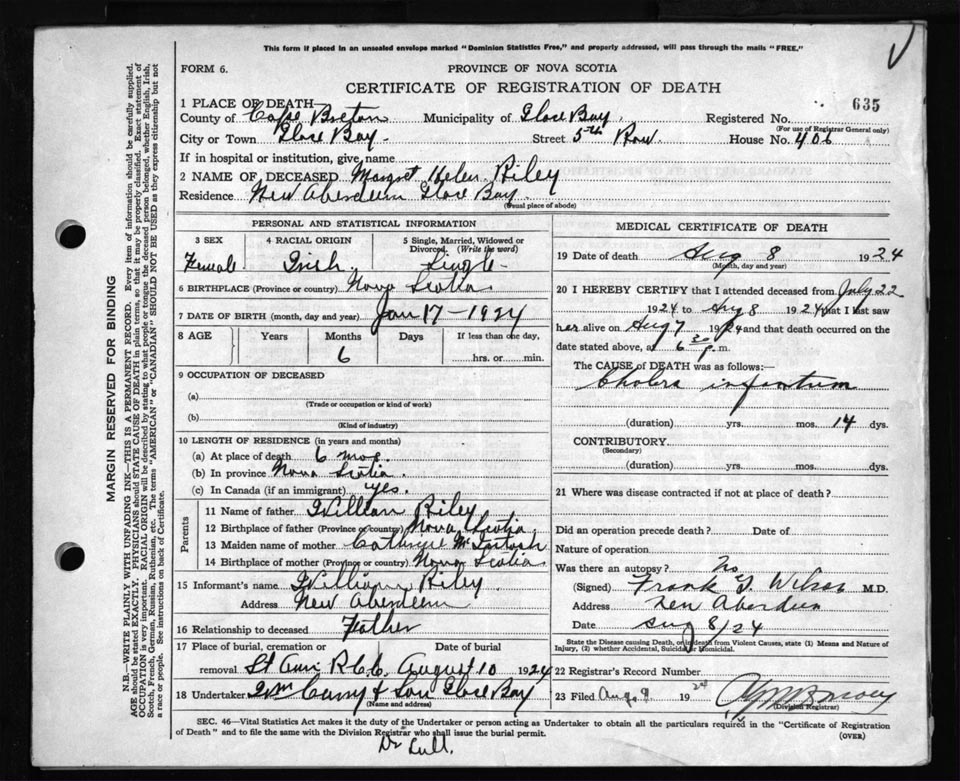 This form if placed in an unsealed envelope marked "Dominion Statistics Free," and properly addressed, will pass through the mails "FREE."
FORM 6.
PROVINCE OF NOVA SCOTIA
CERTIFICATE OF REGISTRATION OF DEATH
635
1 PLACE OF DEATH—
County of Cape Breton Municipality of Glace Bay Registered No.
(For use of Registrar General only)
City or Town Glace Bay. Street 5th Row. House No. 406
If in hospital or institution, give name
2 NAME OF DECEASED Margret Helen Riley
Residence New Aberdeen Glace Bay
(Usual place of abode)
PERSONAL AND STATISTICAL INFORMATION
3 SEX 4 RACIAL ORIGIN 5 Single, Married, Widowed or Divorced. (Write the word)
Female Irish Single
6 BIRTHPLACE (Province or country) Nova Scotia
7 DATE OF BIRTH (month, day and year) Jan 17-1924
8 AGE Years Months Days If less than one day,
6 hrs. or min.
9 OCCUPATION OF DECEASED
(a)
(Trade or occupation or kind of work)
(b)
(Kind of industry)
10 LENGTH OF RESIDENCE (in years and months)
(a) At place of death 6 mos.
(b) In province Nova Scotia.
(c) In Canada (if an immigrant) yes.
Parents
11 Name of father William Riley
12 Birthplace of father (Province or country) Nova Scotia
13 Maiden name of mother McIntosh
14 Birthplace of mother (Province or country) Nova Scotia
15 Informant's name William Riley
Address New Aberdeen
16 Relationship to deceased Father
17 Place of burial, cremation or Date of burial
removal St Ann R.C.C. August 10 1924
18 Undertaker Wm & Son Glace Bay
(Name and address)
MEDICAL CERTIFICATE OF DEATH
19 Date of death Aug 8 1924
(Month, day and year)
20 I HEREBY CERTIFY that I attended deceased from July 22
1924 to Aug 8 1924 that I last saw
her alive on Aug 7 1924 and that death occurred on
date stated above, at 6 30 p.m.
The CAUSE of DEATH was as follows:—
Cholera infantum
(duration) yrs. mos. 14 dys.
CONTRIBUTORY.
(Secondary)
(duration) yrs. mos. dys.
21 Where was disease contracted if not at place of death?
Did an operation precede death? Date of
Nature of operation
Was there an autopsy? No
(Signed) Frank Wilson M.D.
Address New Aberdeen
Date Aug 8/24
State the Disease causing Death, or in death from Violent Causes, state (1) Means and Nature of Injury, (2) whether Accidental, Suicidal or Homicidal.
22 Registrar's Record Number
23 Filed Aug. 9 1924
(Division Registrar)
SEC. 46—Vital Statistics Act makes it the duty of the Undertaker or person acting as Undertaker to obtain all the particulars required in the "Certificate of Registration
of Death" and to file the same with the Division Registrar who shall issue the burial permit.
(OVER)
Dr
MARGIN RESERVED FOR BINDING
N.B.—WRITE PLAINLY WITH UNFADING INK—THIS IS A PERMANENT RECORD. Every item of information should be carefully supplied.
AGE should be stated EXACTLY. PHYSICIANS should STATE CAUSE OF DEATH in plain terms, so that it may be properly classified. Exact statement of
OCCUPATION is very important. RACIAL ORIGIN will be described by stating to what people or tongue the deceased person belonged, whether English, Irish,
Scotch, French, German, Russian, Ruthenian, etc. The terms "AMERICAN" or "CANADIAN" SHOULD NOT BE USED as they express citizenship but not
a race or people. See instructions on back of Certificate.